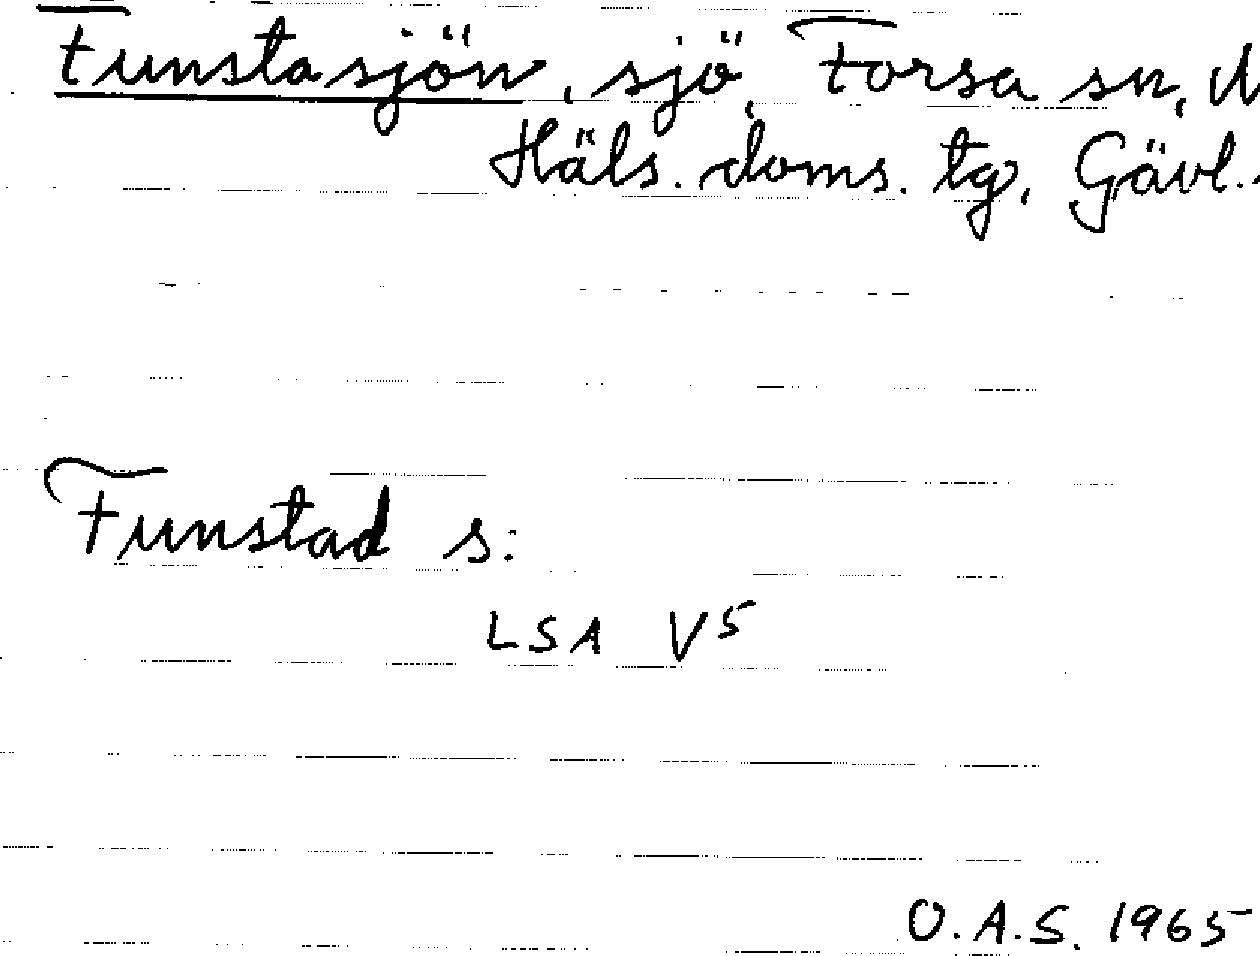 Funstasjön, sjö, Forsa sn, N
Häls. doms. tg. Gävl.
Funstad s:
LSA V5
O.A.S. 1965